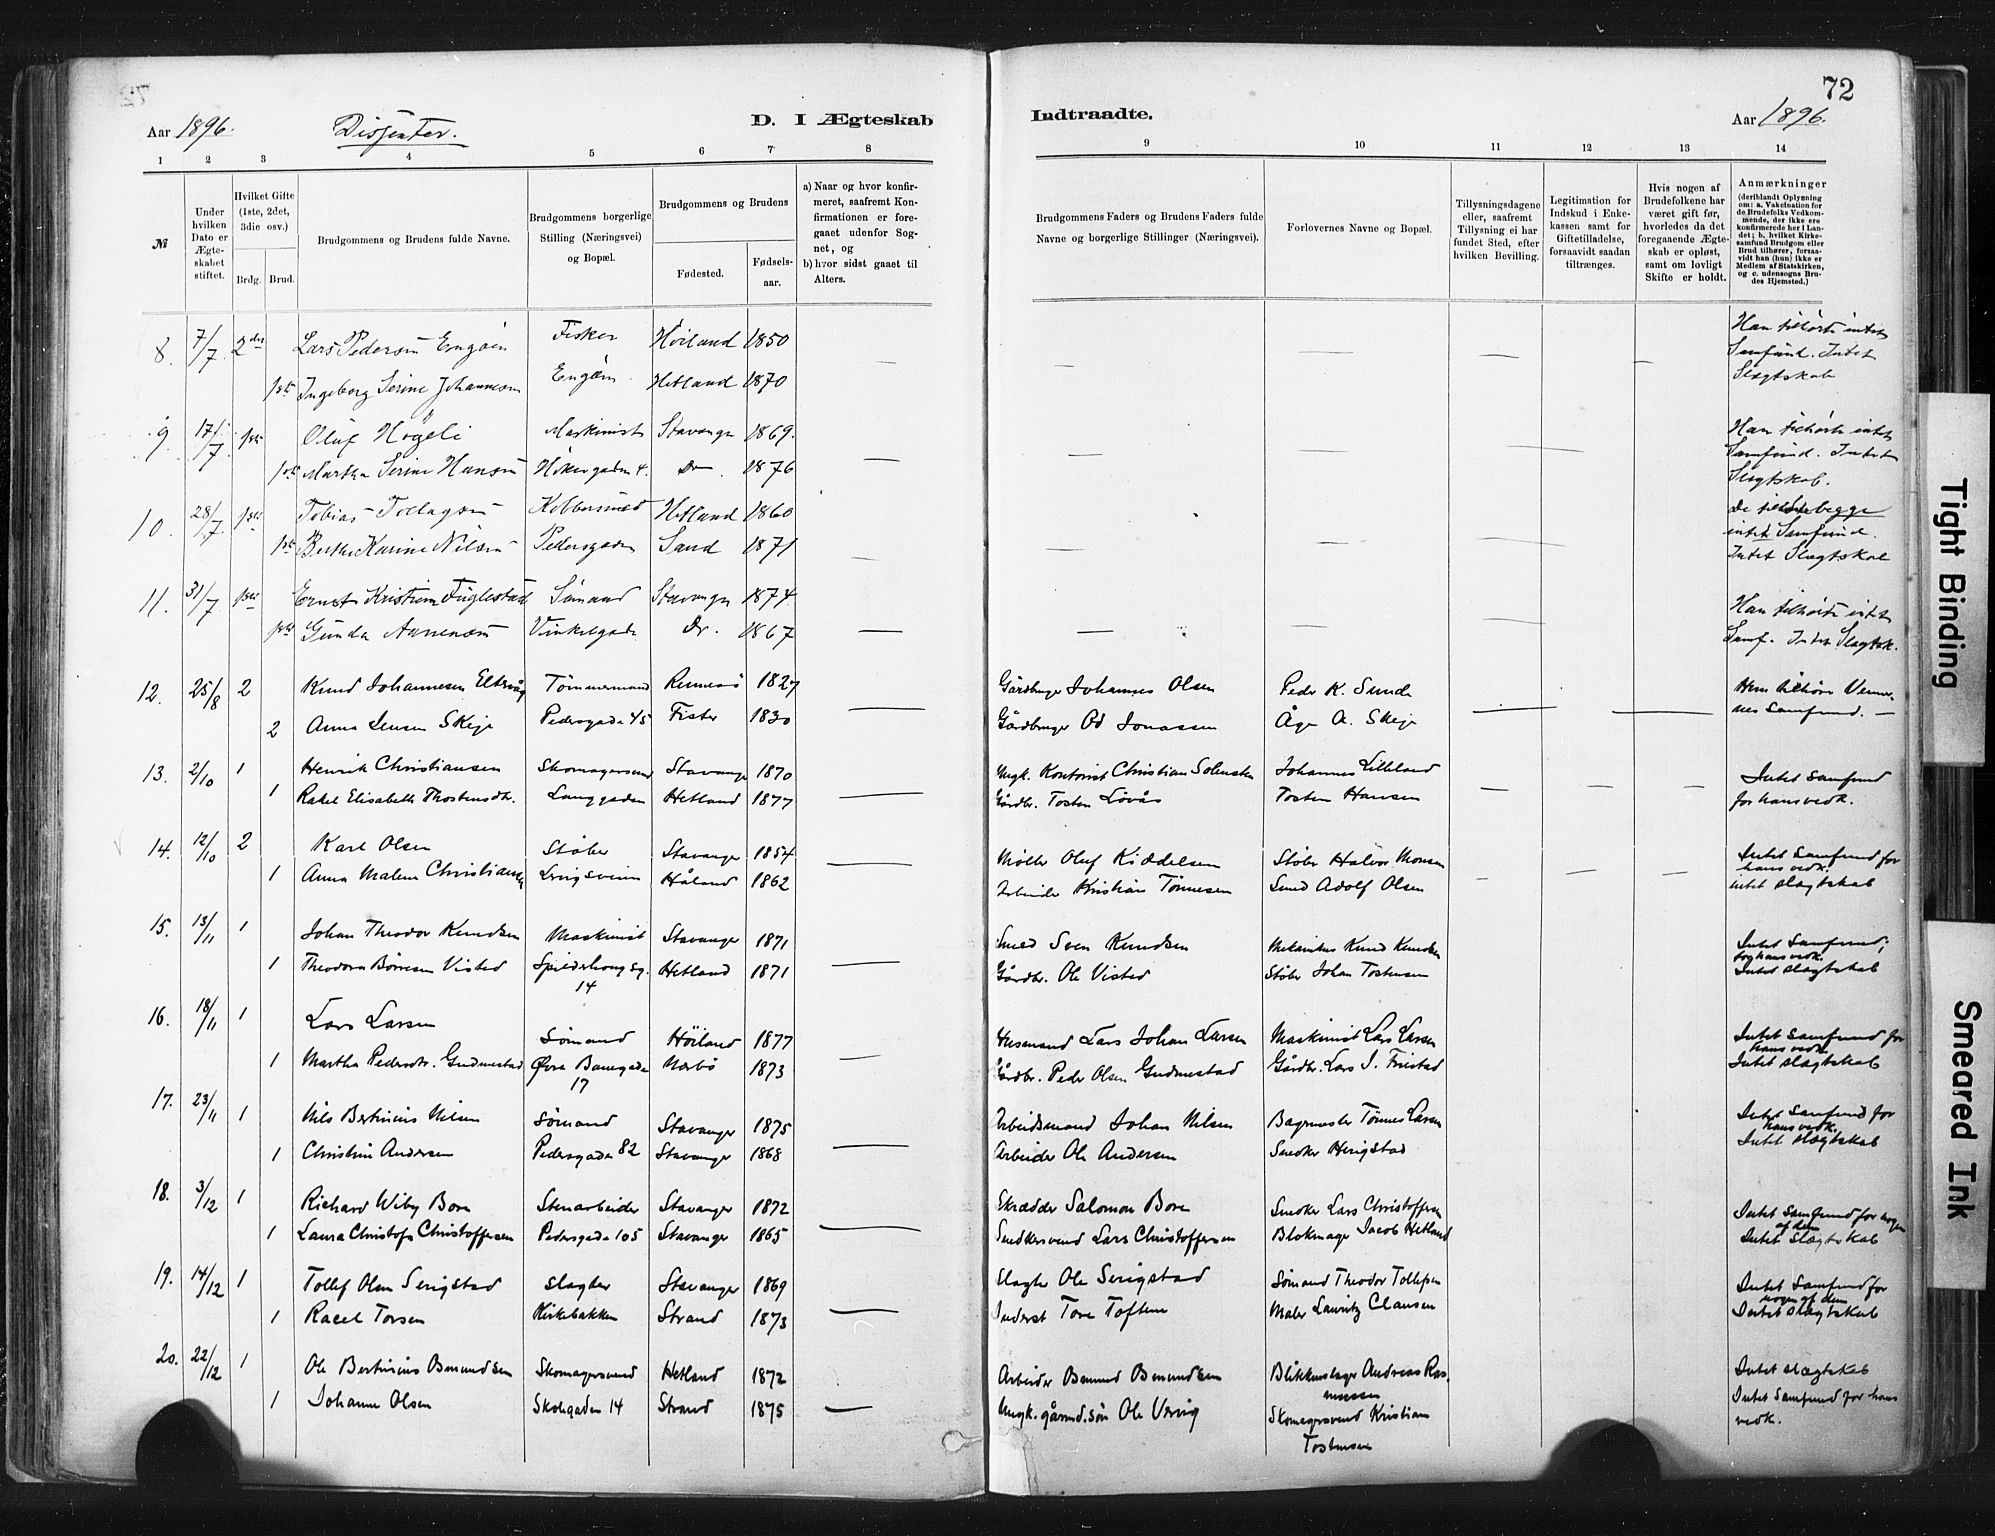 72
Aar 1896. Dissenter. D. I Ægteskab Indtraadte. Aar 1896.
1 2 3 4 5 6 7 8 9 10 11 12 13 14
№
Under hvilken Dato er Ægteskabet stiftet.
Hvilket Gifte (1ste, 2det, 3die osv.)
Brdg. Brud.
Brudgommens og Brudens fulde Navne.
Brudgommens borgerlige Stilling (Næringsvei) og Bopæl.
Brudgommens og Brudens
Fødested. Fødselsaar.
a) Naar og hvor konfirmeret, saafremt Konfirmationen er foregaaet udenfor Sognet, og
b) hvor sidst gaaet til Alters.
Brudgommens Faders og Brudens Faders fulde Navne og borgerlige Stillinger (Næringsvei).
Forlovernes Navne og Bopæl.
Tillysningsdagene eller, saafremt Tillysning ei har fundet Sted, efter hvilken Bevilling.
Legitimation for Indskud i Enkekassen samt for Giftetilladelse, forsaavidt saadan tiltrænges.
Hvis nogen af Brudefolkene har været gift før, hvorledes da det foregaaende Ægteskab er opløst, samt om lovligt Skifte er holdt.
Anmærkninger (deriblandt Oplysning om: a. Vakcination for de Brudefolks Vedkommende, der ikke ere konfirmerede her i Landet; b. hvilket Kirkesamfund Brudgom eller Brud tilhører, forsaavidt han (hun) ikke er Medlem af Statskirken, og c. udensogns Brudes Hjemsted.)
8. 7/7 2det Lars Pedersen Engøen Fisker Høiland 1850 — — — — — Han tilhørte intet Samfund. Intet Slægtskab
1ste Ingeborg Serine Johannesen Engøen. Hetland 1870
9 17/7 1ste Oluf Høgeli Maskinist Stavanger 1869. — Han tilhørte intet Samfund. Intet Slægtskab.
1ste Martha Serine Hansen Høkergaden 4. Do. 1876
10. 28/7 1ste Tobias Tollagsen Kobbersmed Hetland 1860 — — — — De tilhørte begge intet Samfund. Intet Slægtskab
1ste Berthe Karine Nilsen Pedersgaden Sand 1871
11. 31/7 1ste Ernst Kristian Fuglestad Sømand Stavanger 1874 — — — Han tilhørte intet Samf. Intet Slægtsk.
1ste Gunda Aanensen Vinkelgade Do. 1867
12. 25/8 2 Knud Johannesen Eltervåg Tømmermand Rennesø 1827 — Gårdbruger Johannes Olsen Peder K. Sunde — — Han tilhører Vennernes Samfund. —
2 Anna Jensen Skeje Pedersgade 45 Fister 1830 Gårdbruger Od Jonassen Åge A. Skeje
13. 2/10 1 Henrik Christiansen Skomagersvend Stavanger 1870 — Ungk. Kontorist Christian Johannes Lilleland — — — Intet Samfund for hans vedk.
1 Rakel Elisabeth Thostensdtr. Langgaden Hetland 1877 Gårdbr. Tosten Løvås Tosten Hansen
14. 12/10 2 Karl Olsen Støber Stavanger 1854 — Møller Oluf Kiddelsen Støber Halvor Monsen — — — Intet Samfund for hans vedk. intet slægtskab
1 Anna Malene Christiansen Håland 1862 Arbeider Kristian Tønnesen Smed Adolf Olsen
15. 13/11 1 Johan Theodor Knudsen Maskinist Stavanger 1871 — Smed Sven Knudsen Mekanikus Knud Knudsen Intet Samfund; for hans vedk. Intet slægtskab
1 Theodora Børresen Visted Spilderhougsg. 14 Hetland 1871 Gårdbr. Ole Visted Støber Johan Tostensen
16. 18/11 1 Lars Larsen Sømand Høiland 1877 — Husmand Lars Johan Larsen Maskinist Lars Larsen Intet Samfund for hans vedk. Intet slægtskab
1 Martha Pedersdtr. Gudmestad Øvre Banegade 17 Nærbø 1873 Gårdbr. Peder Olsen Gudmestad Gårdbr. Lars J. Friestad
17. 23/11 1 Nils Bertinius Nilsen Sømand Stavanger 1875 — Arbeidsmand Johan Nilsen Bagmester Tønnes Larsen Intet Samfund for hans vedk. Intet slægtskab
1 Christine Andersen Pedersgade 82 Stavanger 1868 Arbeider Ole Andersen Snedker Herigstad
18. 3/12 1 Richard Wiby Bore Stenarbeider Stavanger 1872 — Skrædder Salomon Bore Snedker Lars Christoffersen Intet Samfund for nogen af dem Intet Slægtskab
1 Laura Christofa Christoffersen Pedersgade 105 Stavanger 1865 Snedkersvend Lars Christoffersen Blokmager Jacob Hetland
19. 14/12 1 Tollef Olsen Serigstad Slagter Stavanger 1869 — Slagter Ole Serigstad Sømand Theodor Tollefsen Intet Samfund for nogen af dem Intet slægtskab
1 Racel Torsen Kirkebakken Strand 1873 Inderst Tore Toftene Maler Lauritz Clausen
20. 22/12 1 Ole Bertinius Osmundsen Skomagersvend Hetland 1872 — Arbeider Osmund Osmundsen Blikkenslager Andreas Rasmussen Intet slægtskab
1 Johanne Olsen Skolegaden 14 Strand 1875 Ungk. gårmd. søn Ole Skomagersvend Kristian Tostensen Intet Samfund for hans vedk.
Tight Binding
Smeared Ink